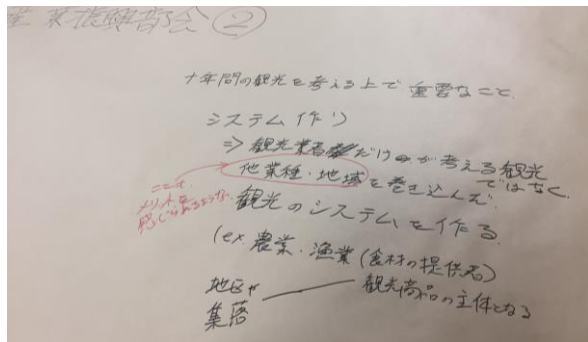 産業振興部会 ②
十年間の観光を考える上で重要なこと。
システム作り
⇒ 観光業者だけが考える観光
ではなく
他業種・地域を巻き込んだ
ここも
メリットを
感じられるような
観光のシステムを作る。
(ex. 農業・漁業(食材の提供者)
地区や
集落
観光商品の主体となる